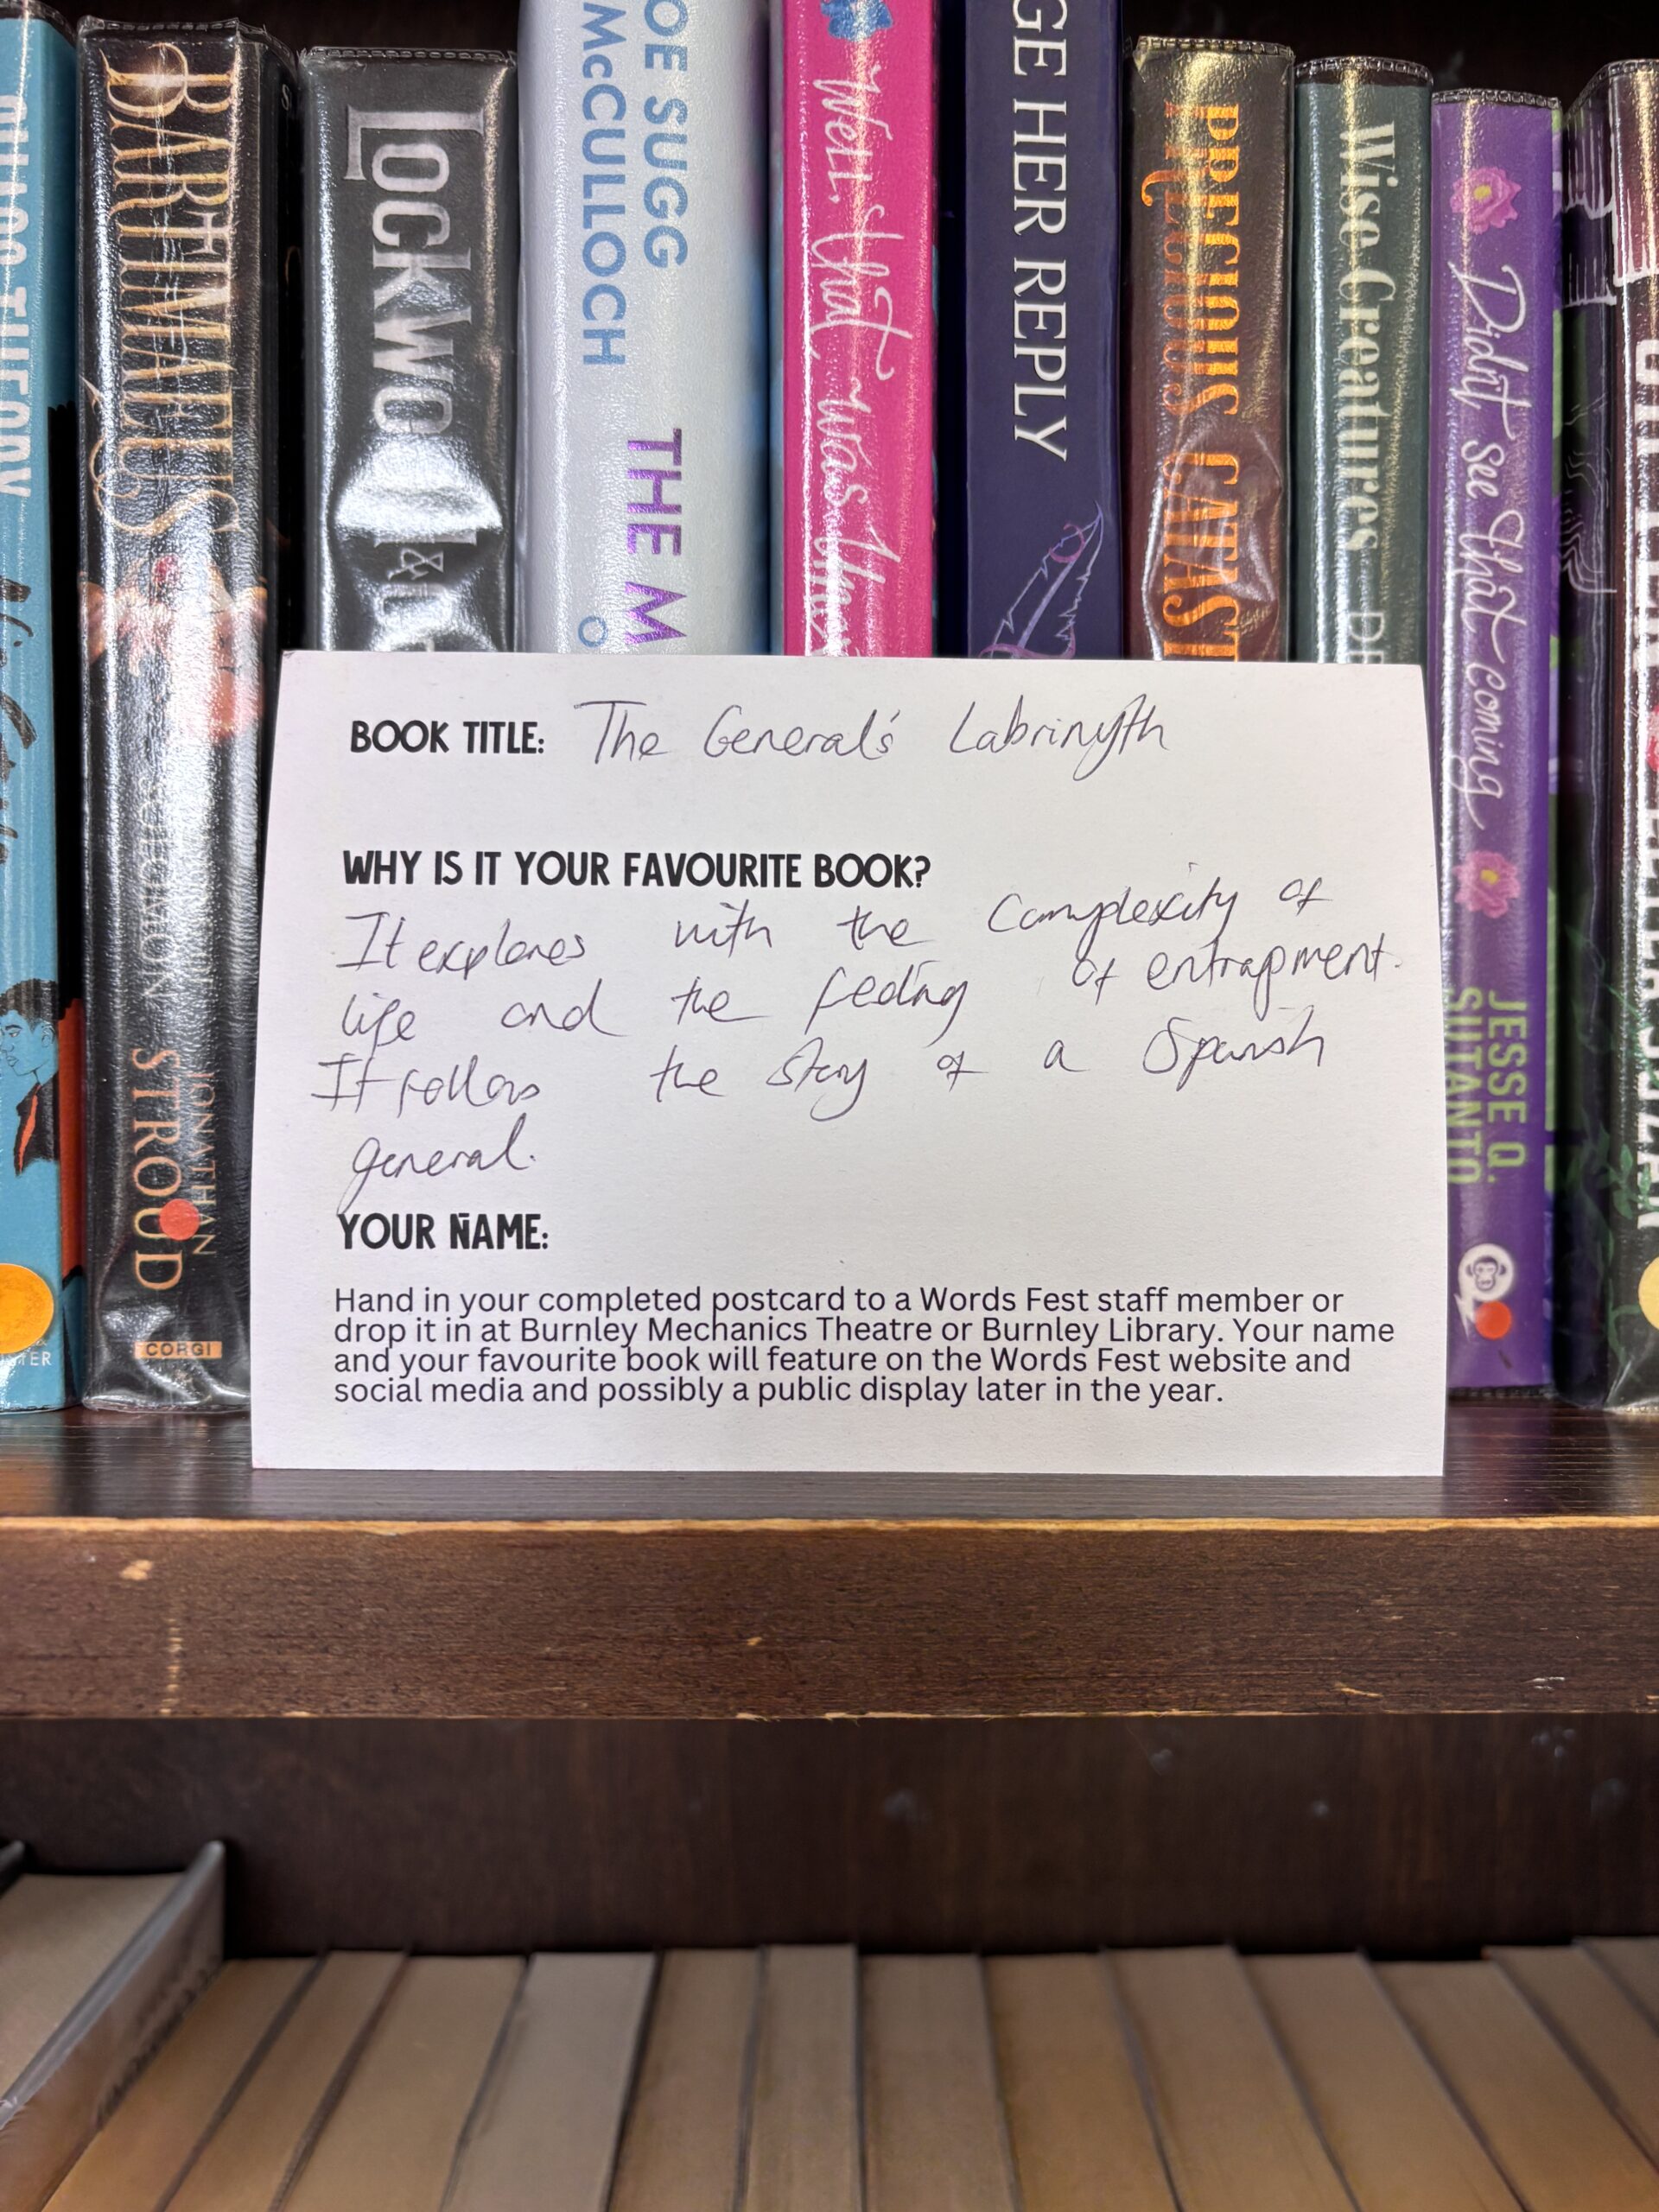 BARTIMAEUS
SOLOMON
JONATHAN
STROUD
CORGI
LOCKWO
&
OE SUGG
McCULLOCH
THE M
Well, that was
GE HER REPLY
PRECIOUS CATAST
Wise Creatures
Didn't see that coming
JESSE Q.
SUTANTO
BOOK TITLE: The General's Labrinyth
WHY IS IT YOUR FAVOURITE BOOK?
It explores with the complexity of
life and the feeling of entrapment.
It follows the story of a Spanish
general.
YOUR NAME:
Hand in your completed postcard to a Words Fest staff member or
drop it in at Burnley Mechanics Theatre or Burnley Library. Your name
and your favourite book will feature on the Words Fest website and
social media and possibly a public display later in the year.